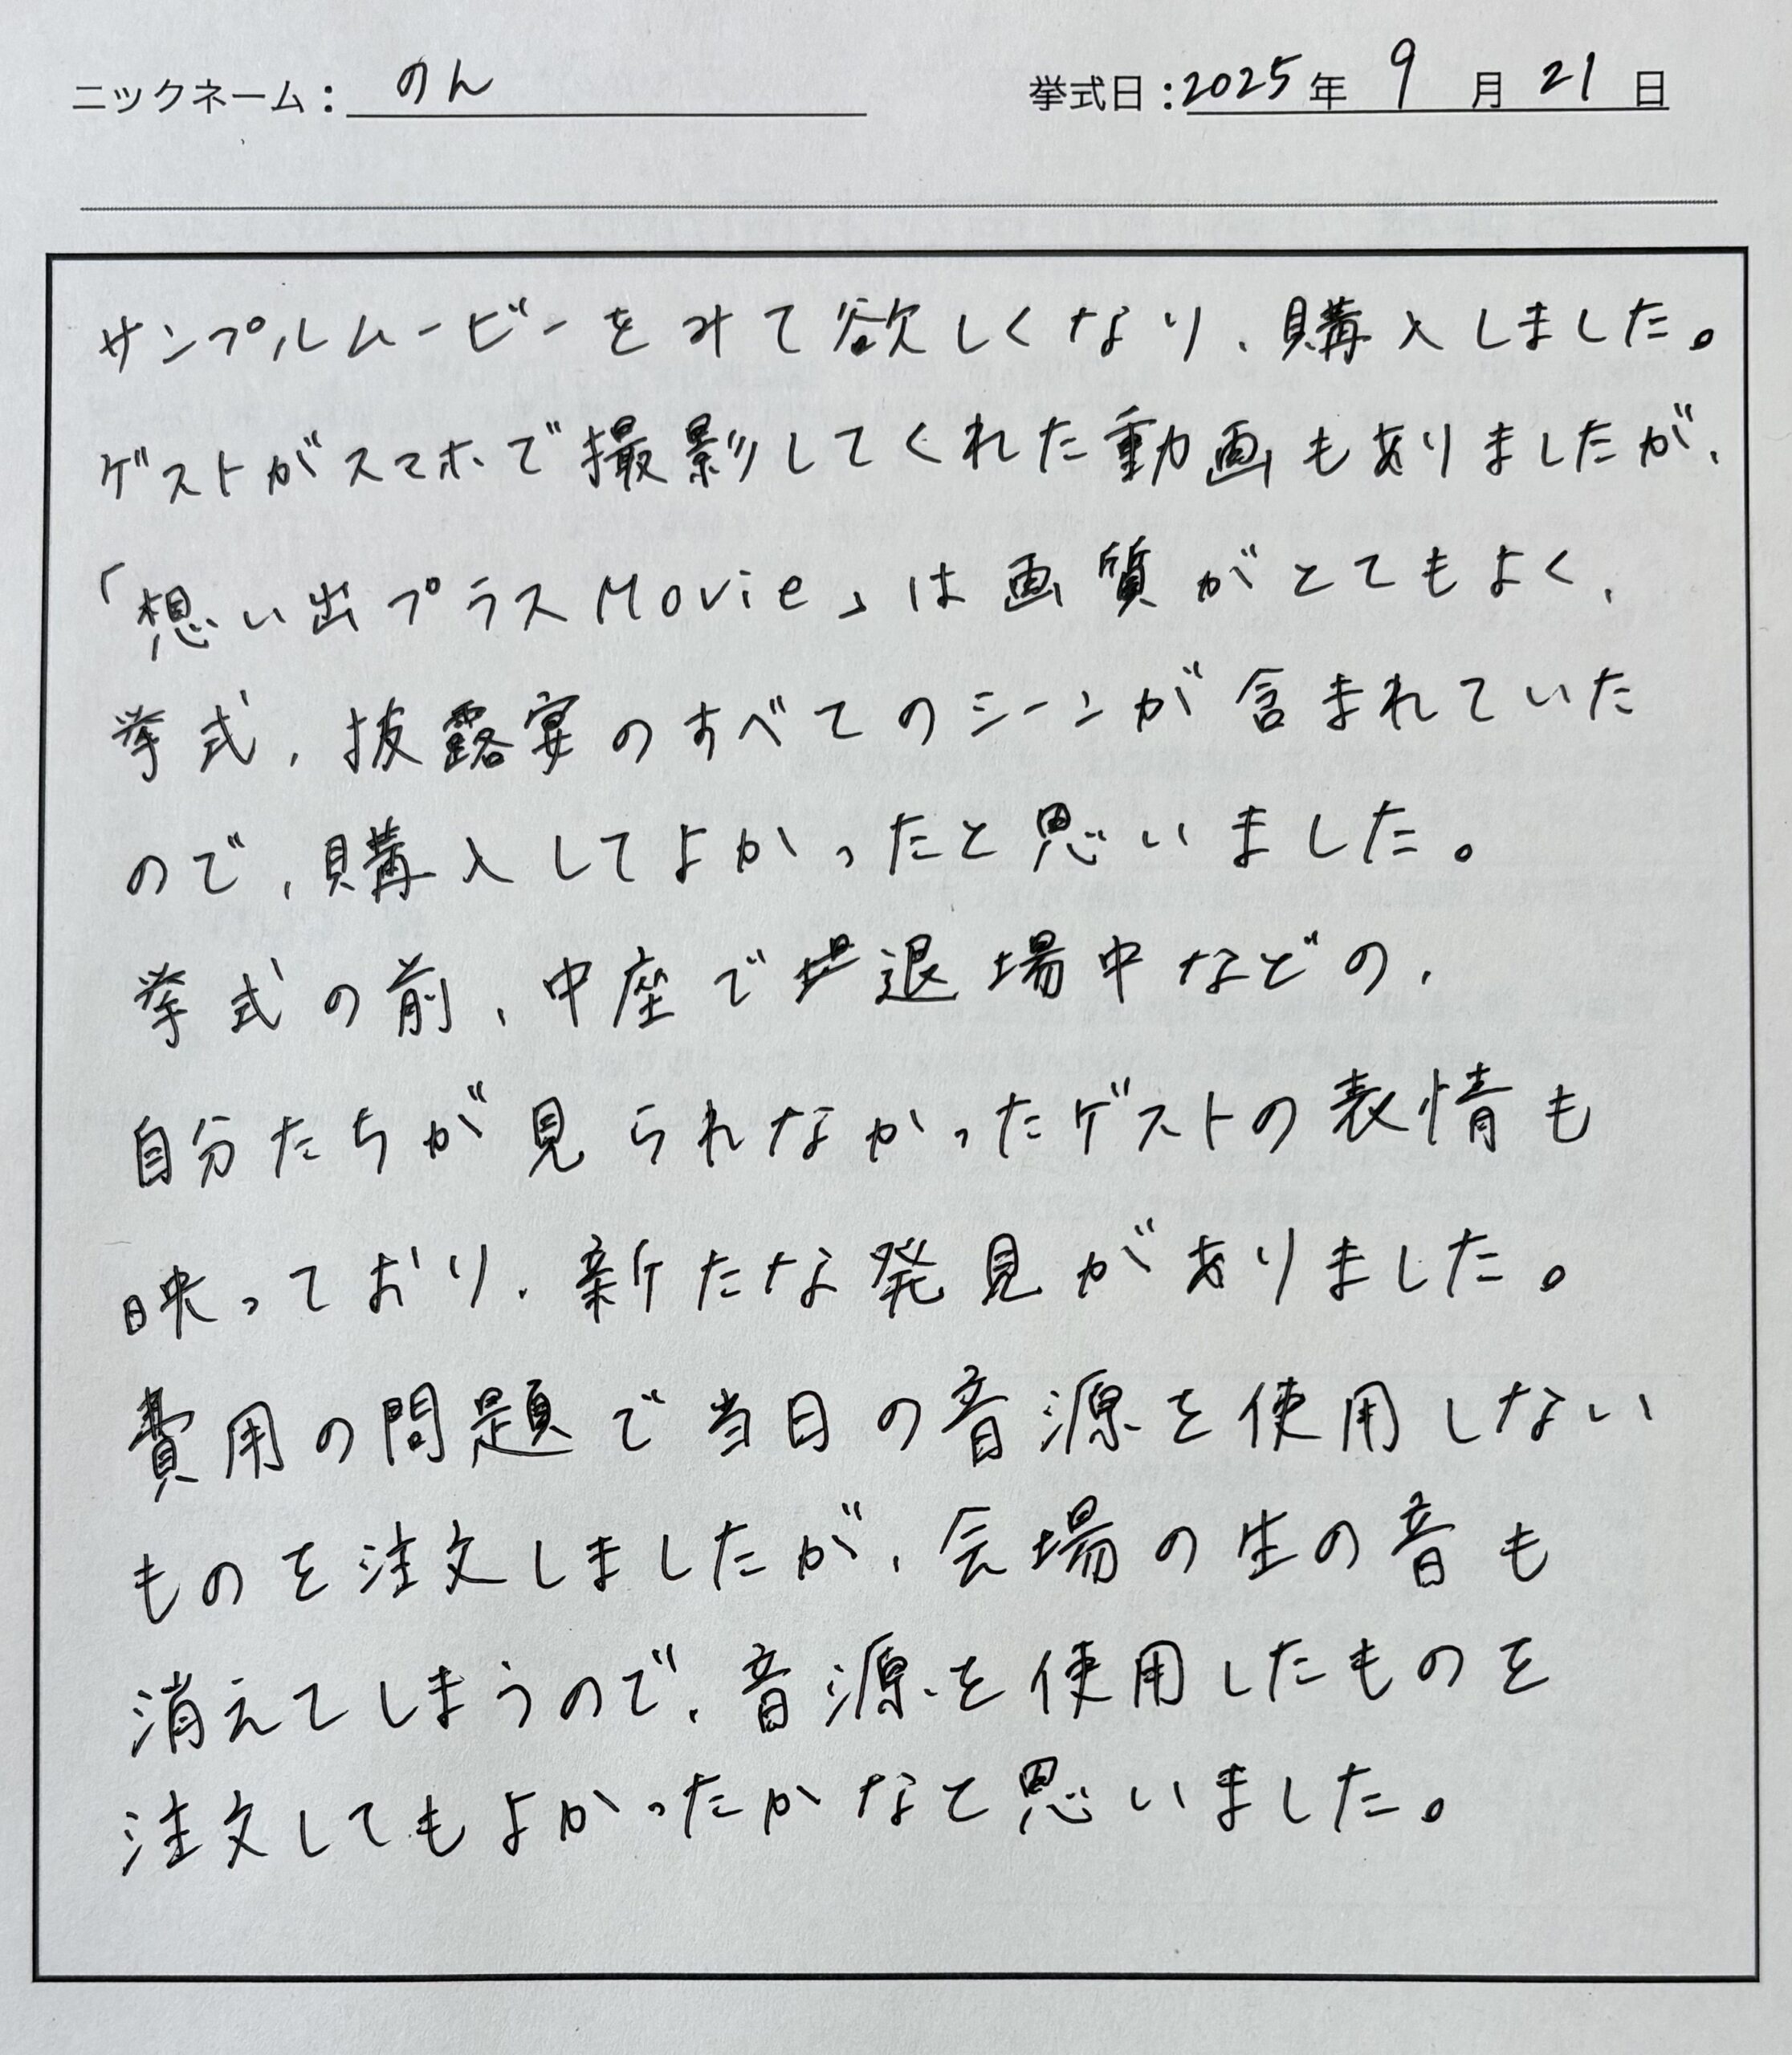 ニックネーム： のん 挙式日：2025年 9 月 21 日
サンプルムービーをみて欲しくなり、購入しました。
ゲストがスマホで撮影してくれた動画もありましたが、
「想い出プラスMovie」は画質がとてもよく、
挙式、披露宴のすべてのシーンが含まれていた
ので、購入してよかったと思いました。
挙式の前、中座で退場中などの、
自分たちが見られなかったゲストの表情も
映っており、新たな発見がありました。
費用の問題で当日の音源を使用しない
ものを注文しましたが、会場の生の音も
消えてしまうので、音源を使用したものを
注文してもよかったかなと思いました。